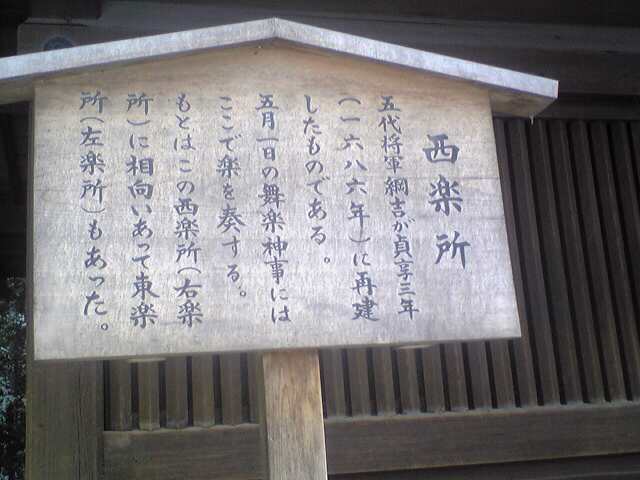 西楽所
五代将軍綱吉が貞享三年
(一六八六年)に再建
したものである。
五月一日の舞楽神事には
ここで楽を奏する。
もとはこの西楽所(右楽
所)に相向いあって東楽
所(左楽所)もあった。